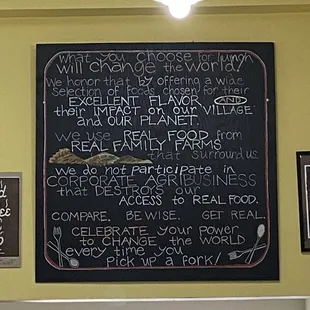 What you choose for lunch
will change the world!
We honor that by offering a wide
selection of foods chosen for their
EXCELLENT FLAVOR AND
their IMPACT on our VILLAGE
and OUR PLANET.
We use REAL FOOD from
REAL FAMILY FARMS
that surround us.
We do not participate in
CORPORATE AGRIBUSINESS
that DESTROYS our
ACCESS to REAL FOOD.
COMPARE. BE WISE. GET REAL.
CELEBRATE your power
to CHANGE the WORLD
every time you
PICK up a fork!